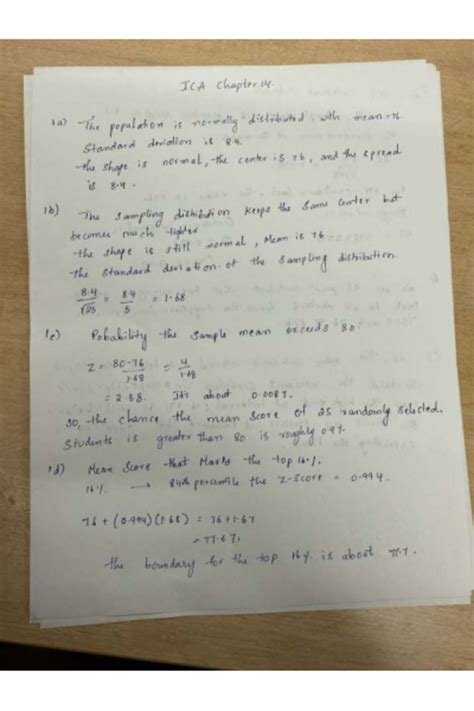 ICA Chapter 14.
1a) The population is normally distributed with mean=76
Standard deviation is 8.4.
the shape is normal, the center is 76, and the spread
is 8.4.
1b) The sampling distribution keeps the same center but
becomes much tighter
the shape is still normal, Mean is 76.
the standard deviation of the sampling distribution
8.4/√25 = 8.4/5 = 1.68
1c) Probability the sample mean exceeds 80.
Z = 80-76/1.68 = 4/1.68
= 2.38. It's about 0.0087.
so, the chance the mean score of 25 randomly selected
students is greater than 80 is roughly 0.9%.
1d) Mean Score that Marks the top 16%.
16% → 84th percentile the Z-score = 0.994
76 + (0.994)(1.68) = 76 + 1.67
= 77.67.
the boundary for the top 16% is about 77.7.